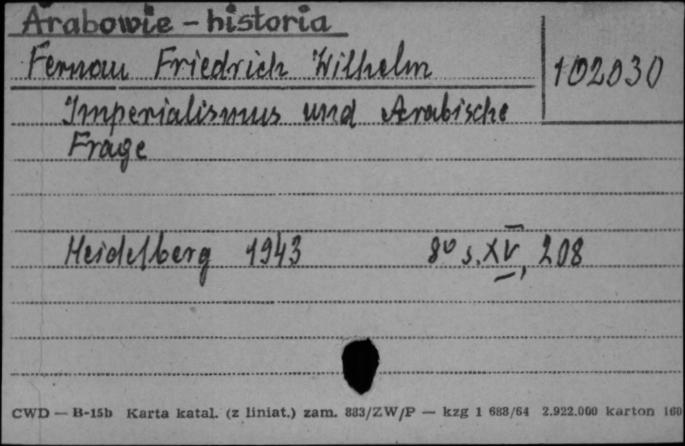 Arabowie - historia
Fernau Friedrich Wilhelm
102030
Imperialismus und Arabische
Frage
Heidelberg 1943 8° s. XV, 208
CWD — B-15b Karta katal. (z liniat.) zam. 883/ZW/P — kzg 1 688/64 2.922.000 karton 160